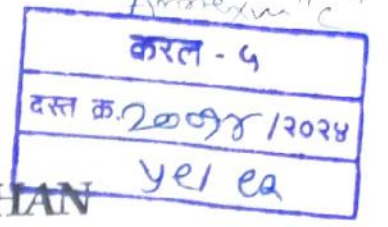 Annexure "C"
करल - ५
दस्त क्र. २००१४ /२०२४
HAN